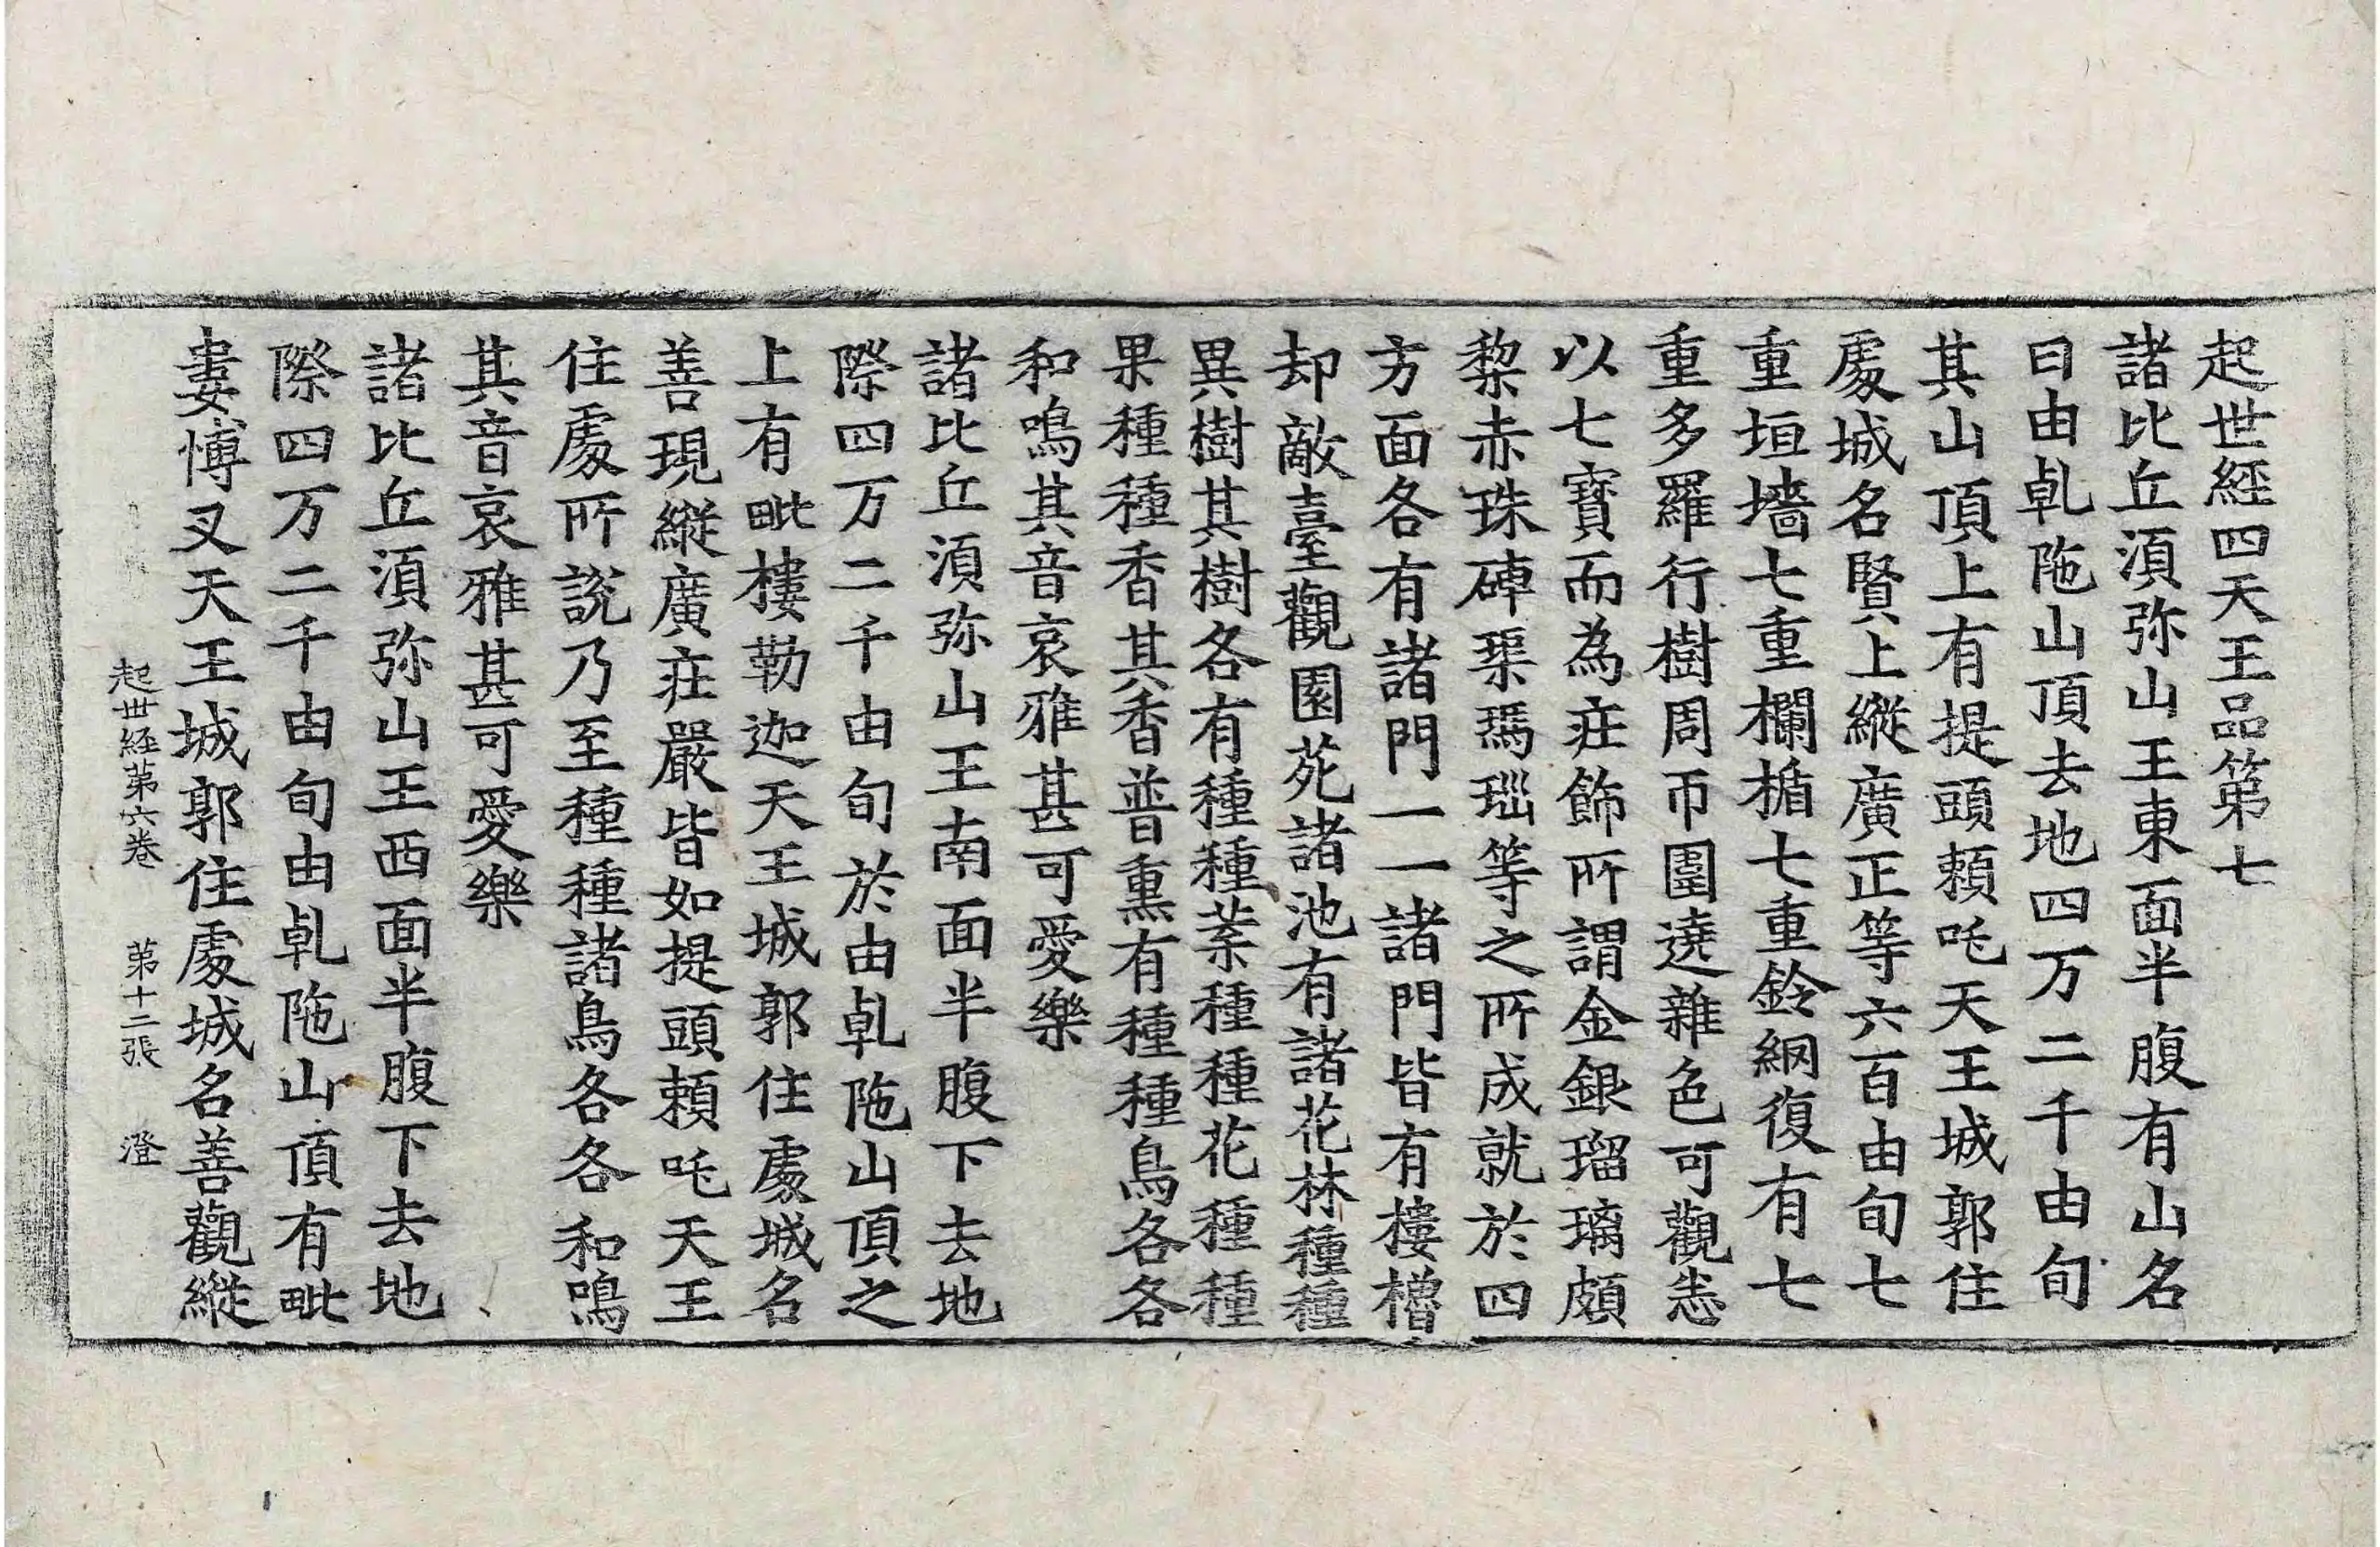 起世經四天王品第七
諸比丘湏弥山王東面半腹有山名
曰由乹陁山頂去地四万二千由旬
其山頂上有提頭賴吒天王城郭住
處城名賢上縱廣正等六百由旬七
重垣墻七重欄楯七重鈴網復有七
重多羅行樹周帀圍遶雜色可觀悉
以七寶而為莊飾所謂金銀瑠璃頗
棃赤珠硨璖瑪瑙等之所成就於四
方面各有諸門一一諸門皆有樓櫓
却敵臺觀園苑諸池有諸花林種種
異樹其樹各有種種葉種種花種種
果種種香其香普熏有種種鳥各各
和鳴其音哀雅甚可愛樂
諸比丘湏弥山王南面半腹下去地
際四万二千由旬於由乹陁山頂之
上有毗樓勒迦天王城郭住處城名
善現縱廣莊嚴皆如提頭賴吒天王
住處所說乃至種種諸鳥各各和鳴
其音哀雅甚可愛樂
諸比丘湏弥山王西面半腹下去地
際四万二千由旬由乹陁山頂有毗
婁博叉天王城郭住處城名善觀縱
起世経第六卷 第十二張 澄